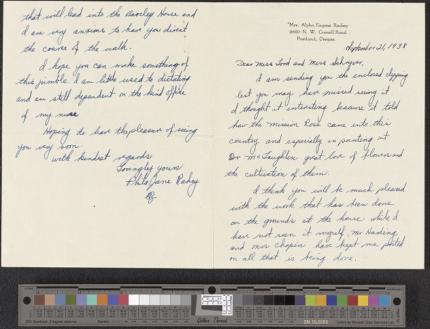 Mrs. Alpha Eugene Rockey
N. W. Cornell Road
Portland, Oregon
September 21, 1938
Dear Miss Lord and Miss Schryver,
I am sending you the enclosed clipping
lest you may have missed seeing it
I thought it interesting because it told
how the Mission Rose came into this
country and especially in pointing out
Dr. McLaughlin great love of flowers and
the cultivation of them.
I think you will be much pleased
with the work that has been done
on the grounds at the house while I
have not seen it myself, Mr Harding
and mrs Chapin have kept me posted
on all that is being done.
that will lead into the House and
I am very anxious to have you direct
the course of the walk.
I hope you can make something of
this jumble I am little used to dictating
and am still dependent on the kind office
of my nurse
Hoping to have the pleasure of seeing
you very soon
with kindest regards
Lovingly yours
Phila Jane Rockey